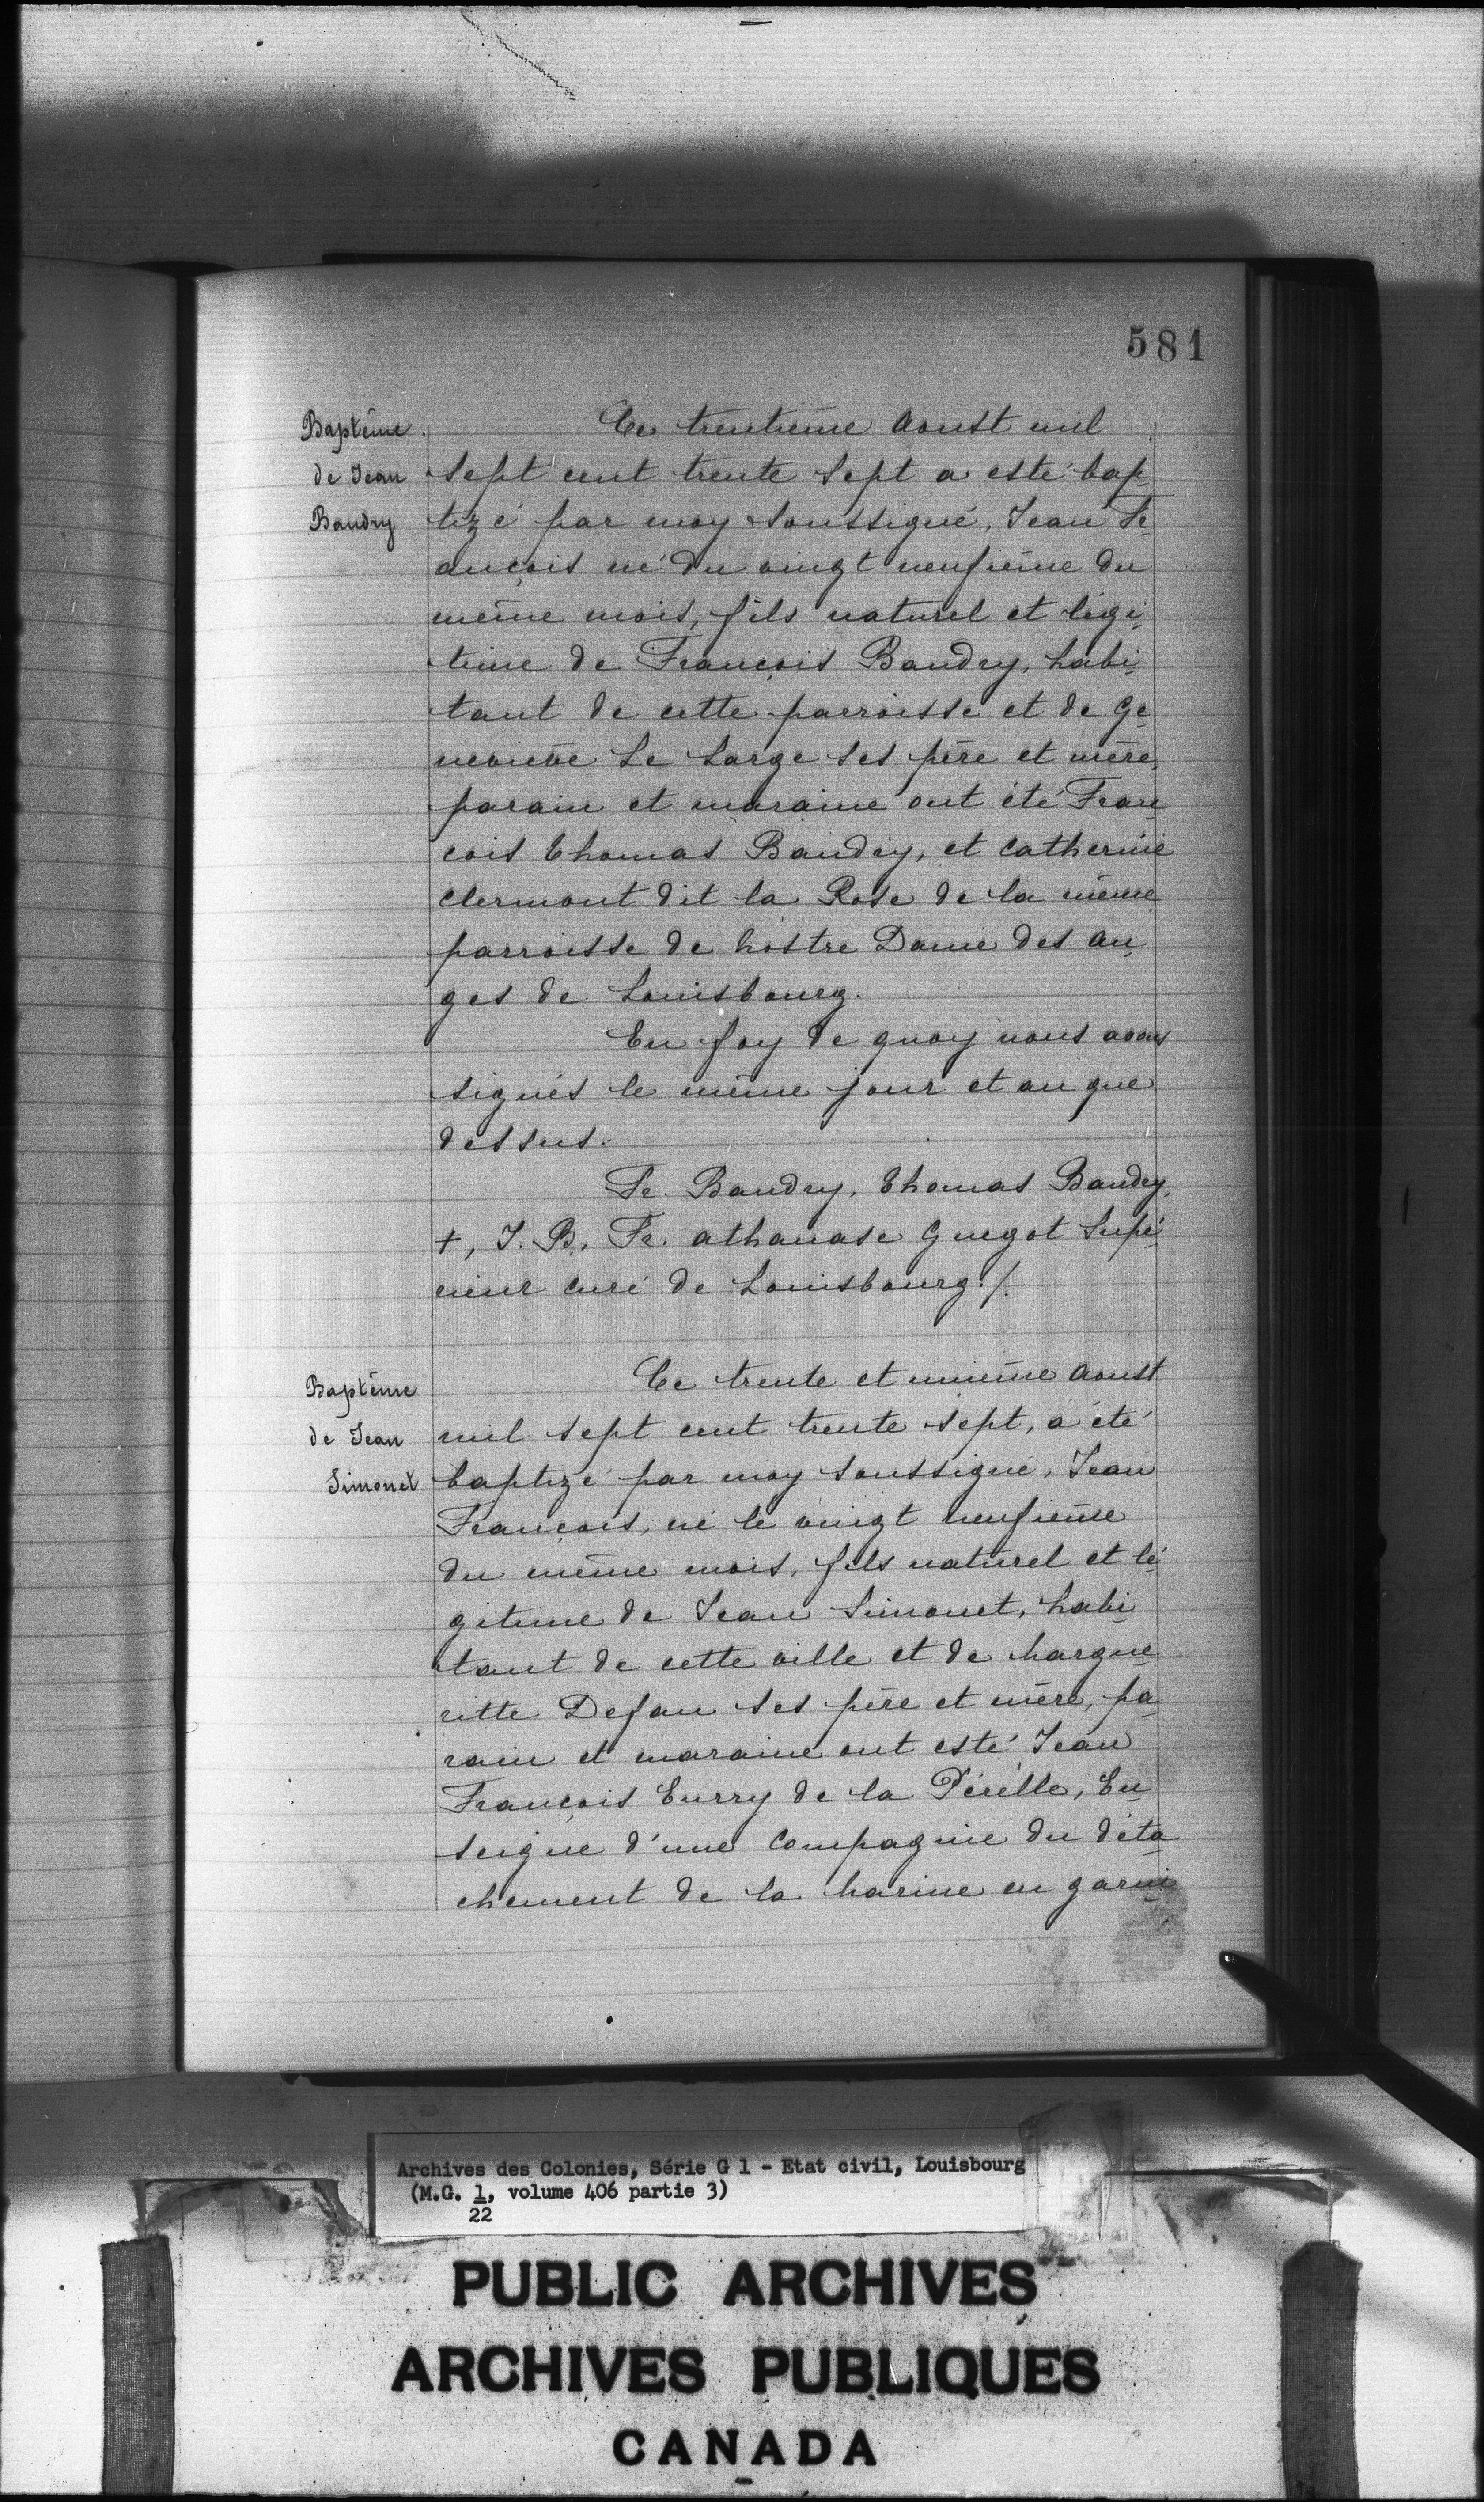 581
Baptême
de Jean
Baudry
Ce trentième Aoust mil
sept cent trente sept a esté bap
tizé par moy soussigné, Jean Fr
ançois né du vingt neufième du
même mois, fils naturel et légi
time de François Baudry, habi
tant de cette parroisse et de Ge
nevieve Le Large ses père et mère,
parain et maraine ont été Fran
çois Thomas Baudry, et Catherine
Clermont dit la Rose de la même
parroisse de Nostre Dame des An
ges de Louisbourg.
En foy de quoy nous avons
signés le même jour et an que
dessus.
Fr. Baudry, Thomas Baudry,
+, J. B. Fr. Athanase Guegot Supé
rieur Curé de Louisbourg ./.
Baptême
de Jean
Simonet
Ce trente et unième Aoust
mil sept cent trente sept, a été
baptizé par moy soussigné, Jean
François, né le vingt neufième
du même mois, fils naturel et lé
gitime de Jean Simonet, habi
tant de cette ville et de Margue
ritte Defau ses père et mère, pa
rain et maraine ont esté Jean
François Eurry de la Pérelle, En
seigne d'une Compagnie du déta
chement de la Marine en garni
Archives des Colonies, Série G 1 - Etat civil, Louisbourg
(M.G. 1, volume 406 partie 3)
22
PUBLIC ARCHIVES
ARCHIVES PUBLIQUES
CANADA